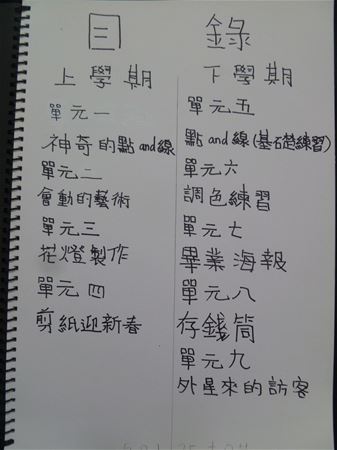 目錄
上學期
單元一
神奇的點and線
單元二
會動的藝術
單元三
花燈製作
單元四
剪紙迎新春
下學期
單元五
點and線(基石楚練習)
單元六
調色練習
單元七
畢業海報
單元八
存錢筒
單元九
外星來的訪客